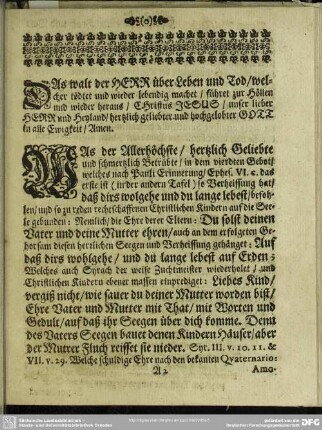 (o)
DAs walt der HERR über Leben und Tod/wel-
cher tödtet und wieder lebendig machet / führet zur Höllen
und wieder heraus / Christus JESUS / unser lieber
HERR und Heyland/ hertzlich geliebter und hochgelobter GOTT
in alle Ewigkeit / Amen.
WAs der Allerhöchste / hertzlich Geliebte
und schmertzlich Betrübte / in dem vierdten Gebot/
welches nach Pauli Erinnerung / Ephes. VI. v. das
erste ist (in der andern Tafel) so Verheissung hat/
daß dirs wolgehe und du lange lebest/ befoh-
len/ und so zu reden rechtschaffenen Christlichen Kindern auf die See-
le gebunden: Nemlich/ die Ehre derer Eltern: Du solst deinen
Vater und deine Mutter ehren/ auch an dem erfolgeten Ge-
horsam diesen herrlichen Seegen und Verheissung gehänget: Auf
daß dirs wohlgehe / und du lange lebest auf Erden;
Welches auch Syrach der weise Zuchtmeister wiederholet / und
Christlichen Kindern ebener massen einprediget: Liebes Kind/
vergiß nicht/ wie sauer du deiner Mutter worden bist/
Ehre Vater und Mutter mit That/ mit Worten und
Gedult/ auf daß ihr Seegen über dich komme. Denn
des Vaters Seegen bauet denen Kindern Häuser/ aber
der Mutter Fluch reisset sie nieder. Syr. III. v. 10. 11. &
VII. v. 29. Welche schuldige Ehre nach den bekanten Qvaternario:
A 2
Amo-